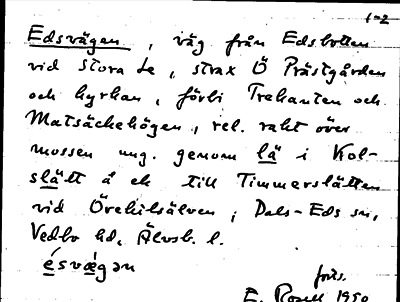 1-2
Edsvägen, väg från Edsbotten
vid Stora Le, strax Ö Prästgården
och kyrkan, förbi Trekanten och
Matsäckehögen, rel. rakt över
mossen ung. genom lä i Kol-
slätt å ek till Timmerslätten
vid Örekilsälven, Dals-Eds sn,
Vedbo hd, Älvsb. l.
ésvæ̀gən
forts.
E. Rosell 1950